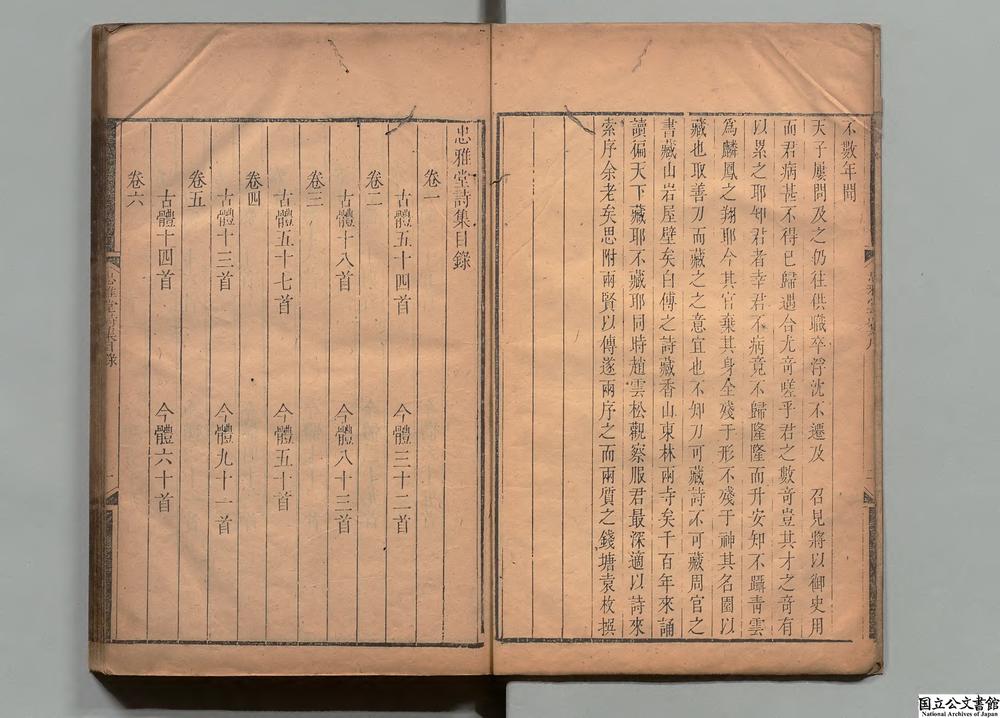 不數年間
天子屢問及之仍往供職卒浮沈不遷及　召見將以御史用
而君病甚不得已歸遇合尤奇嗟乎君之數奇豈其才之奇有
以累之耶知君者幸君不病竟不歸隆隆而升安知不躡青雲
為麟鳳之翔耶今其官棄其身全殘于形不殘于神其名園以
藏也取善刀而藏之之意宜也不知刀可藏詩不可藏周官之
書藏山岩屋壁矣白傅之詩藏香山東林兩寺矣千百年來誦
讀徧天下藏耶不藏耶同時趙雲松觀察服君最深適以詩來
索序余老矣思附兩賢以傳遂兩序之而兩質之錢塘袁枚撰
忠雅堂詩集目錄
卷一
古體五十四首　今體三十二首
卷二
古體十八首　今體八十三首
卷三
古體五十七首　今體五十首
卷四
卷五
古體十三首　今體九十一首
卷六
古體十四首　今體六十首
忠雅堂詩集目錄
一
国立公文書館
National Archives of Japan